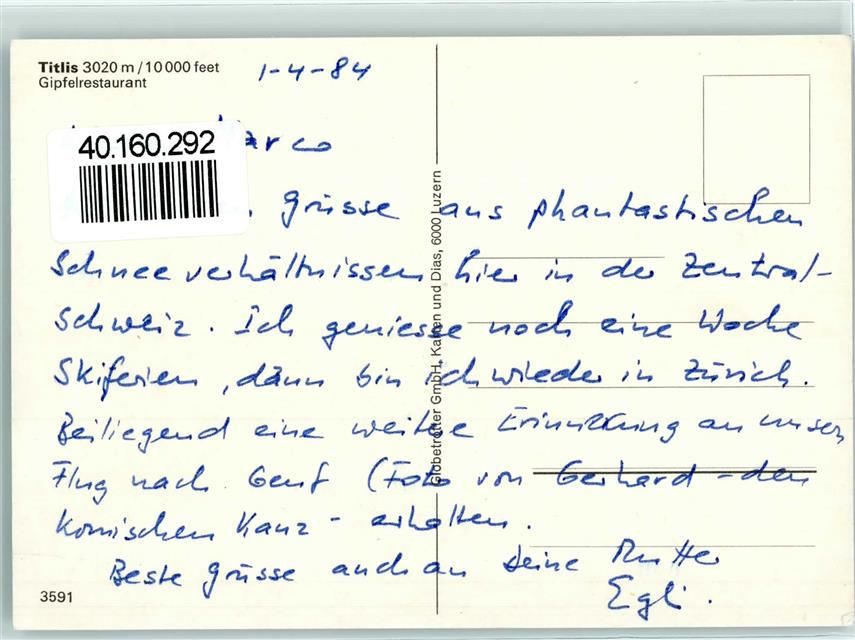 Titlis 3020 m / 10 000 feet
Gipfelrestaurant
1-4-84
40.160.292
Marco
Grüsse aus phantastischen
Schneeverhältnissen hier in der Zentral-
schweiz. Ich geniesse noch eine Woche
Skiferien, dann bin ich wieder in Zürich.
Beiliegend eine weitere Erinnerung an unsern
Flug nach Genf (Foto von Gerhard - den
komischen Kanz - erhalten.
Beste Grüsse auch an Deine Mutter
Egli.
Globetrotter GmbH, Karten und Dias, 6000 Luzern
3591